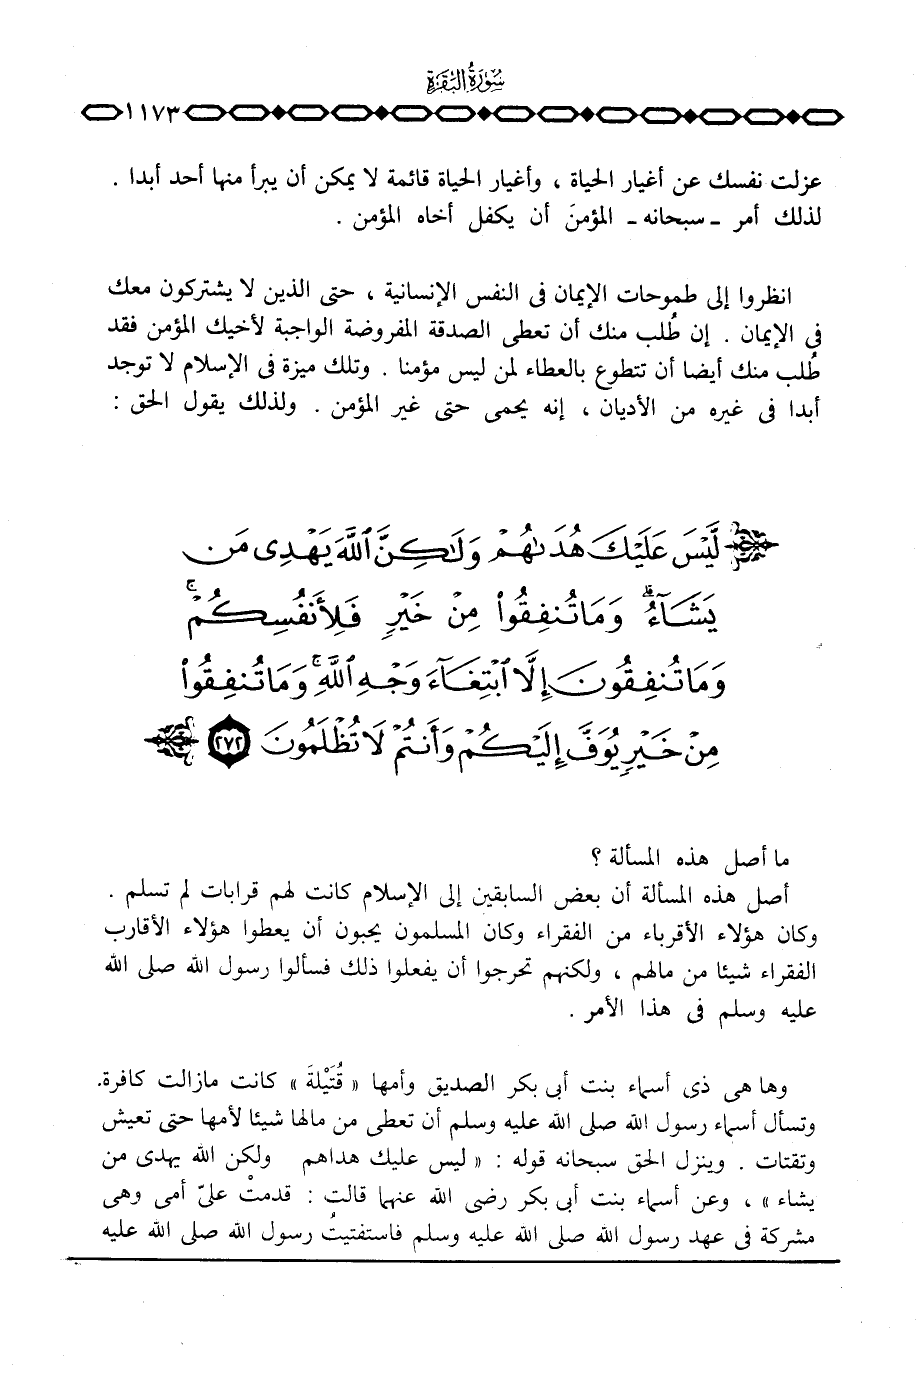 سُورَةُ البَقَرَةِ
١١٧٣
عزلت نفسك عن أغيار الحياة ، وأغيار الحياة قائمة لا يمكن أن يبرأ منها أحد أبدا .
لذلك أمر ـ سبحانه ـ المؤمنَ أن يكفل أخاه المؤمن .
انظروا إلى طموحات الإيمان فى النفس الإنسانية ، حتى الذين لا يشتركون معك
فى الإيمان . إن طُلب منك أن تعطى الصدقة المفروضة الواجبة لأخيك المؤمن فقد
طُلب منك أيضا أن تتطوع بالعطاء لمن ليس مؤمنا . وتلك ميزة فى الإسلام لا توجد
أبدا فى غيره من الأديان ، إنه يحمى حتى غير المؤمن . ولذلك يقول الحق :
لَّيْسَ عَلَيْكَ هُدَىٰهُمْ وَلَٰكِنَّ ٱللَّهَ يَهْدِى مَن
يَشَآءُ ۗ وَمَا تُنفِقُوا۟ مِنْ خَيْرٍ فَلِأَنفُسِكُمْ ۚ
وَمَا تُنفِقُونَ إِلَّا ٱبْتِغَآءَ وَجْهِ ٱللَّهِ ۚ وَمَا تُنفِقُوا۟
مِنْ خَيْرٍ يُوَفَّ إِلَيْكُمْ وَأَنتُمْ لَا تُظْلَمُونَ ٢٧٢
ما أصل هذه المسألة ؟
أصل هذه المسألة أن بعض السابقين إلى الإسلام كانت لهم قرابات لم تسلم .
وكان هؤلاء الأقرباء من الفقراء وكان المسلمون يحبون أن يعطوا هؤلاء الأقارب
الفقراء شيئا من مالهم ، ولكنهم تحرجوا أن يفعلوا ذلك فسألوا رسول الله صلى الله
عليه وسلم فى هذا الأمر .
وها هى ذى أسماء بنت أبى بكر الصديق وأمها « قُتَيْلةَ » كانت مازالت كافرة.
وتسأل أسماء رسول الله صلى الله عليه وسلم أن تعطى من مالها شيئا لأمها حتى تعيش
وتقتات . وينزل الحق سبحانه قوله : « ليس عليك هداهم ولكن الله يهدى من
يشاء » ، وعن أسماء بنت أبى بكر رضى الله عنهما قالت : قدمتْ علىّ أمى وهى
مشركة فى عهد رسول الله صلى الله عليه وسلم فاستفتيتُ رسول الله صلى الله عليه